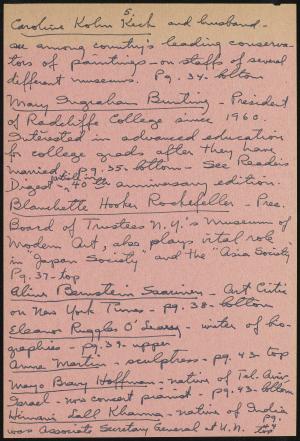 5.
Caroline Kohn Keck and husband -
are among country's leading conserva-
tors of paintings - on staffs of several
different museums. Pg. 34 - bottom
Mary Ingraham Bunting - President
of Radcliffe College since 1960.
Interested in advanced education
for college grads after they have
married. Pg. 35 - bottom - See Readers
Digest 40th anniversary edition.
Blanchette Hooker Rockefeller - Pres.
Board of Trustees N.Y.'s Museum of
Modern Art, also plays vital role
in "Japan Society" and the "Asia Society"
Pg. 37 - top
Aline Bernstein Saarinen - Art Critic
on New York Times - pg. 38 - bottom
Eleanor Ruggles O'Leary - writer of bio-
graphies - pg. 39 - upper
Anne Martin - sculptress - pg. 43 - top
Mayo Bracy Hoffman - native of Tel Aviv
Israel - now concert pianist - pg. 43 - bottom
Lall Khanna - native of India
was Associate Secretary General at U.N. Pg. top